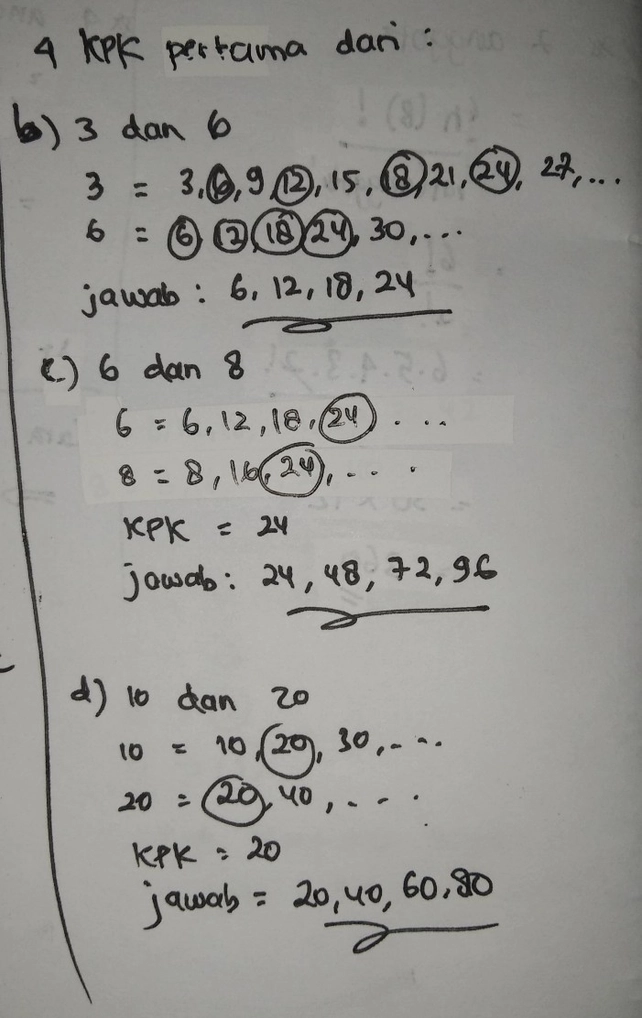 4 KPK pertama dari :
b) 3 dan 6
3 = 3, 6, 9, 12, 15, 18, 21, 24, 27, ...
6 = 6, 12, 18, 24, 30, ...
jawab : 6, 12, 18, 24
c) 6 dan 8
6 = 6, 12, 18, 24 ...
8 = 8, 16, 24, ...
KPK = 24
jawab : 24, 48, 72, 96
d) 10 dan 20
10 = 10, 20, 30, ...
20 = 20, 40, ...
KPK = 20
jawab = 20, 40, 60, 80